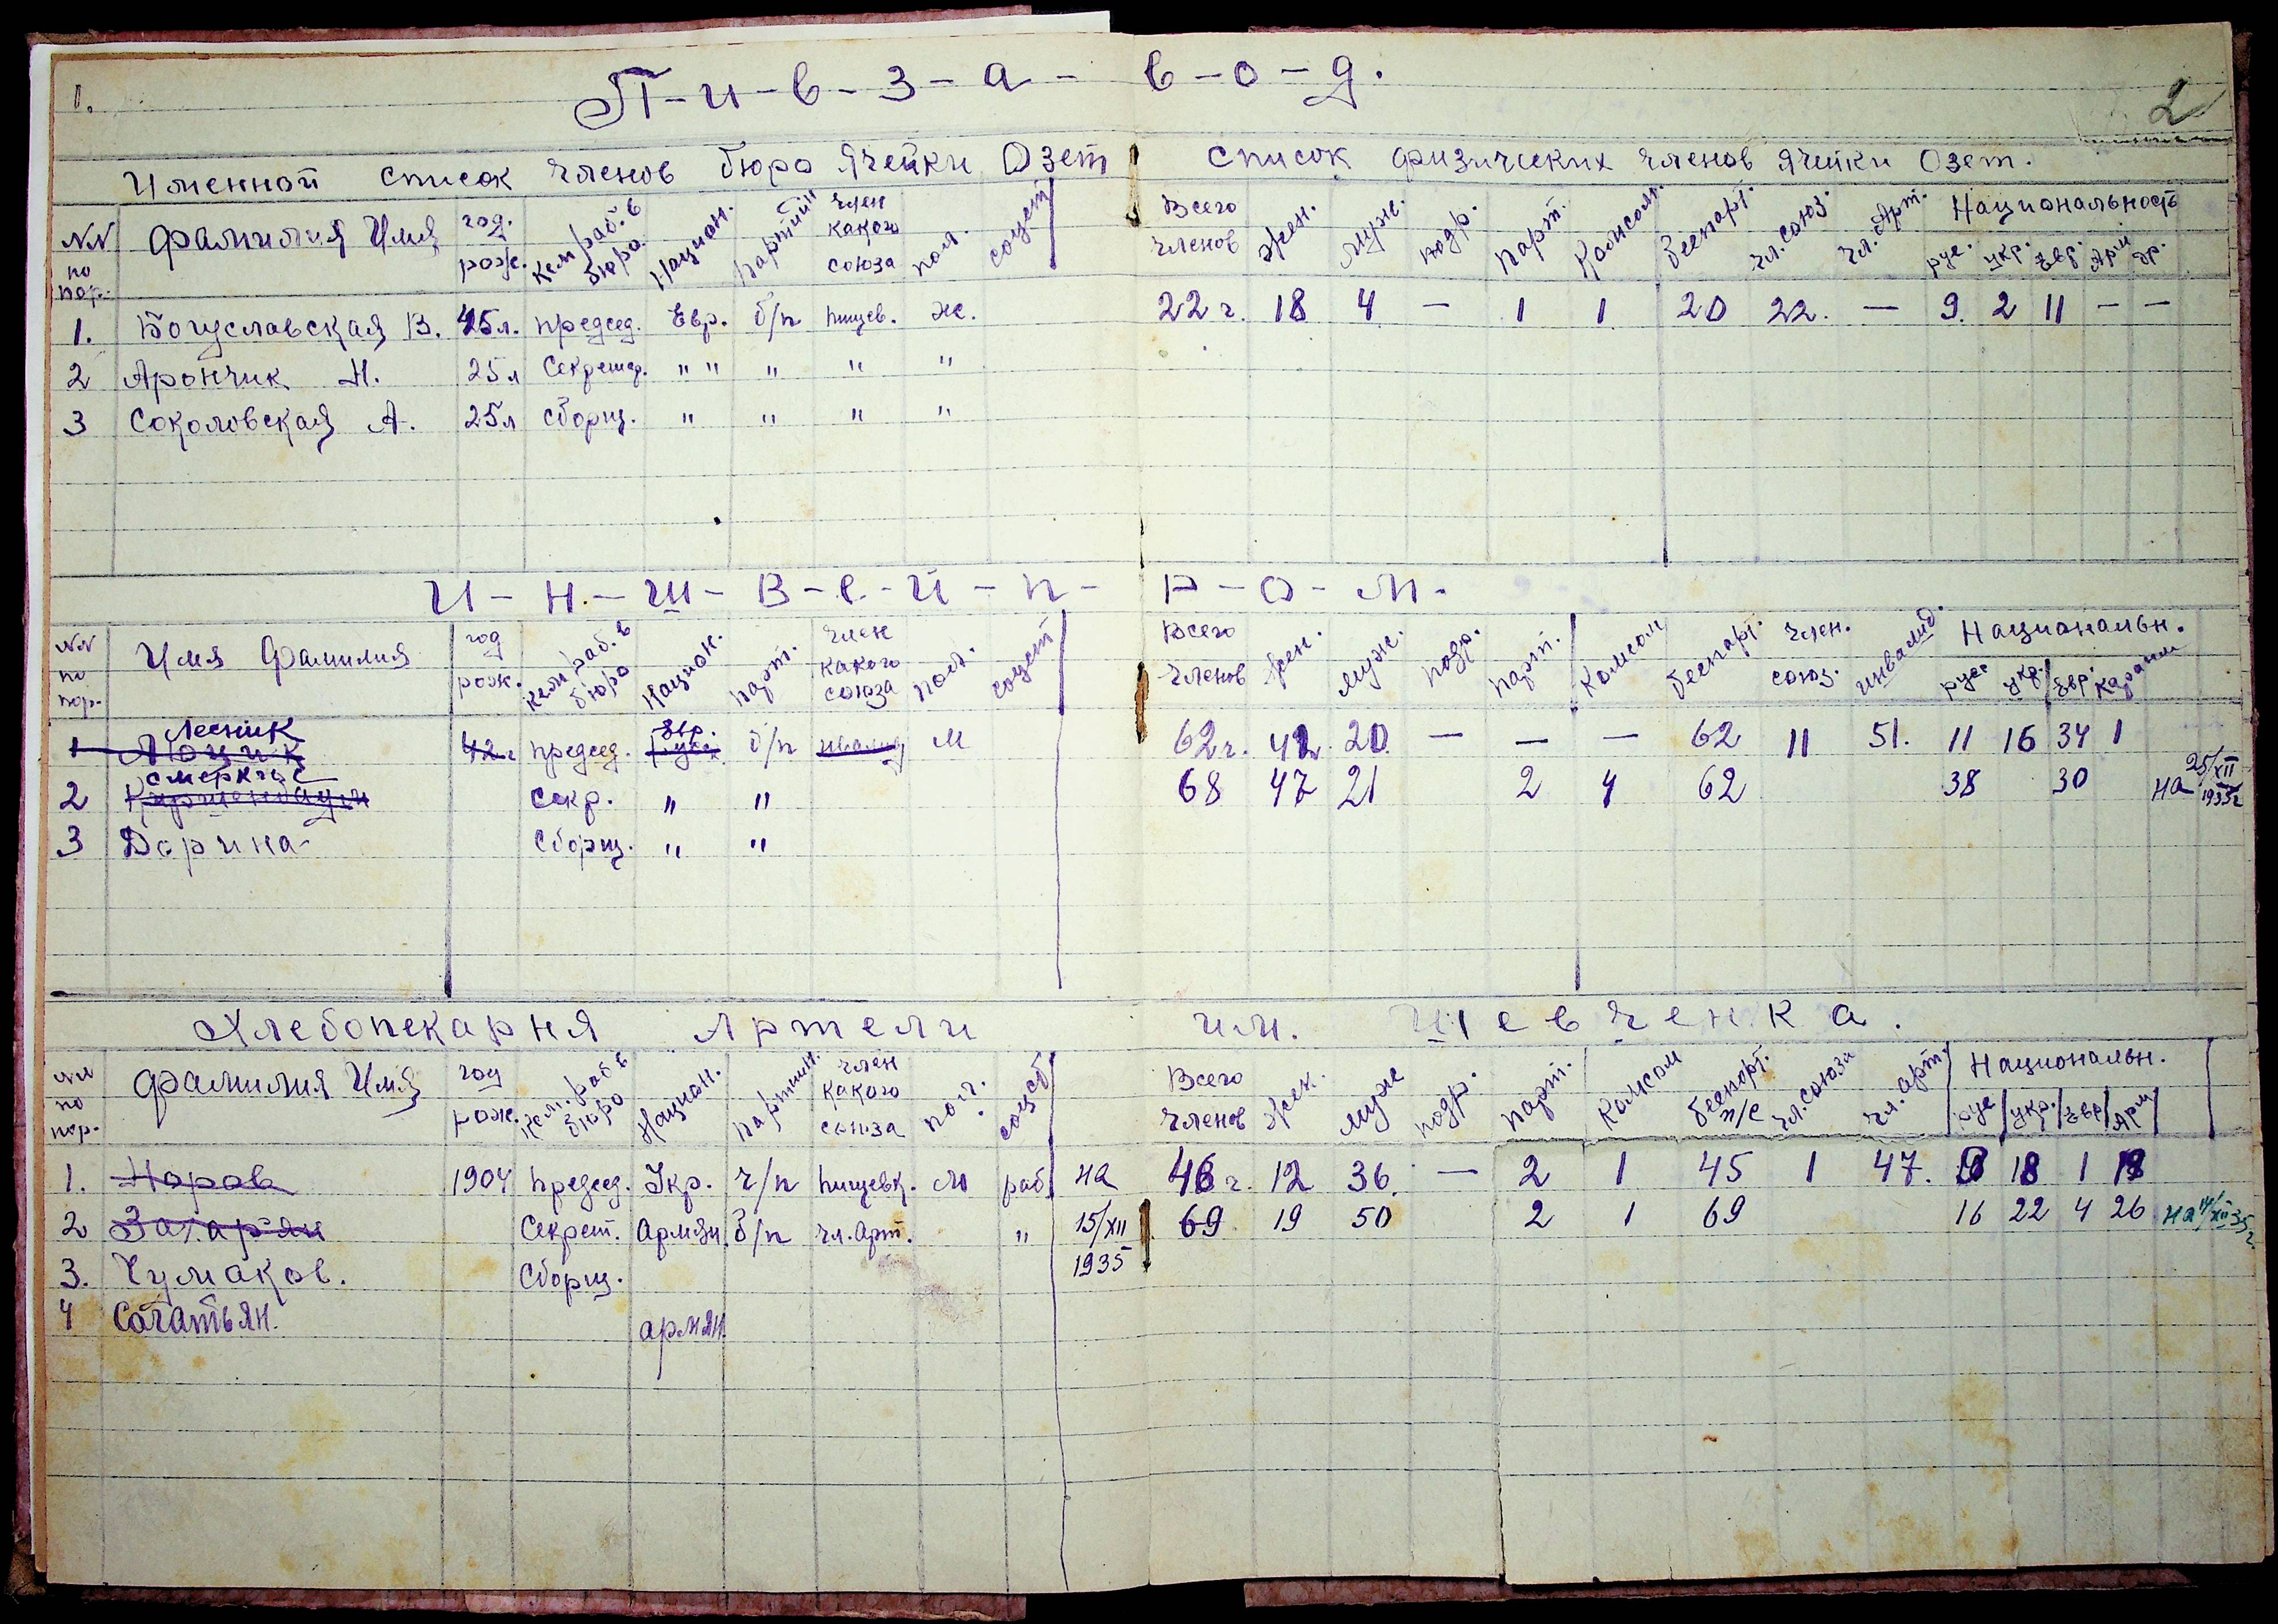 1.
П-и-в-з-а-в-о-д.
2
Именной список членов бюро ячейки Озет
Список физических членов ячейки Озет.
NN по пор. Фамилия Имя год. рож. кем раб. в бюро. Национ. партийн член какого союза пол. соцет
Всего членов жен. муж. подр. парт. Комсом. беспарт. чл. союз. чл. Арт. Национальность рус. укр. Евр. Арм гр.
1. Богуславская В. 45л. председ. Евр. б/п пищев. ж. 22 ч. 18 4 — 1 1 20 22. — 9. 2 11 — —
2 Арончик Н. 25л Секретар. " " " " "
3 Соколовская А. 25л сборщ. " " " "
И-н.-ш-в-е-й-п-р-о-м.
NN по пор. Имя Фамилия год рож. кем раб. в бюро Национ. парт. член какого союза пол. соцет
Всего членов жен. муж. подр. парт. Комсом беспарт. член. союз. инвалид. Национальн. рус. укр. Евр. караим
Лесник Евр.
1 42 г председ. б/п М 62 ч. 42. 20. — — — 62 11 51. 11 16 34 1
2 Секр. " " 68 47 21 2 4 62 38 30 на 25/XII 1935г
3 Дорина Сборщ. " "
Хлебопекарня Артели им. Шевченка.
NN по пор. Фамилия Имя год рож. кем. раб. в бюро Национ. партийн. член какого союза пол. соцет
Всего членов Жен. муж подр. парт. Комсом беспарт. п/с чл. союза чл. арт. Национальн. рус укр. Евр Арм
1. Норов 1904 председ. Укр. ч/п пищевк. м раб. на 48 ч. 12 36. — 2 1 45 1 47. 18 1
2 Захарьян Секрет. Армян. б/п чл. Арт. " 15/XII 1935 69 19 50 2 1 69 16 22 4 26 на 14/XII 35 г.
3. Чумаков. Сборщ.
4 Согатьян. армян.